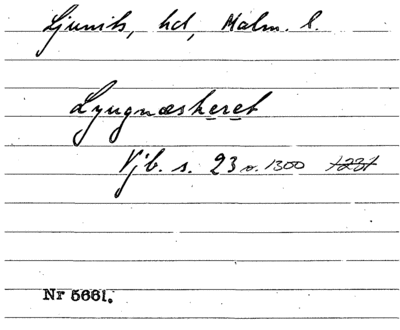 Ljunits, hd, Malm. l.
Lyugnæsheret
Vjb. s. 23 o. 1300 1231
Nr 5661.